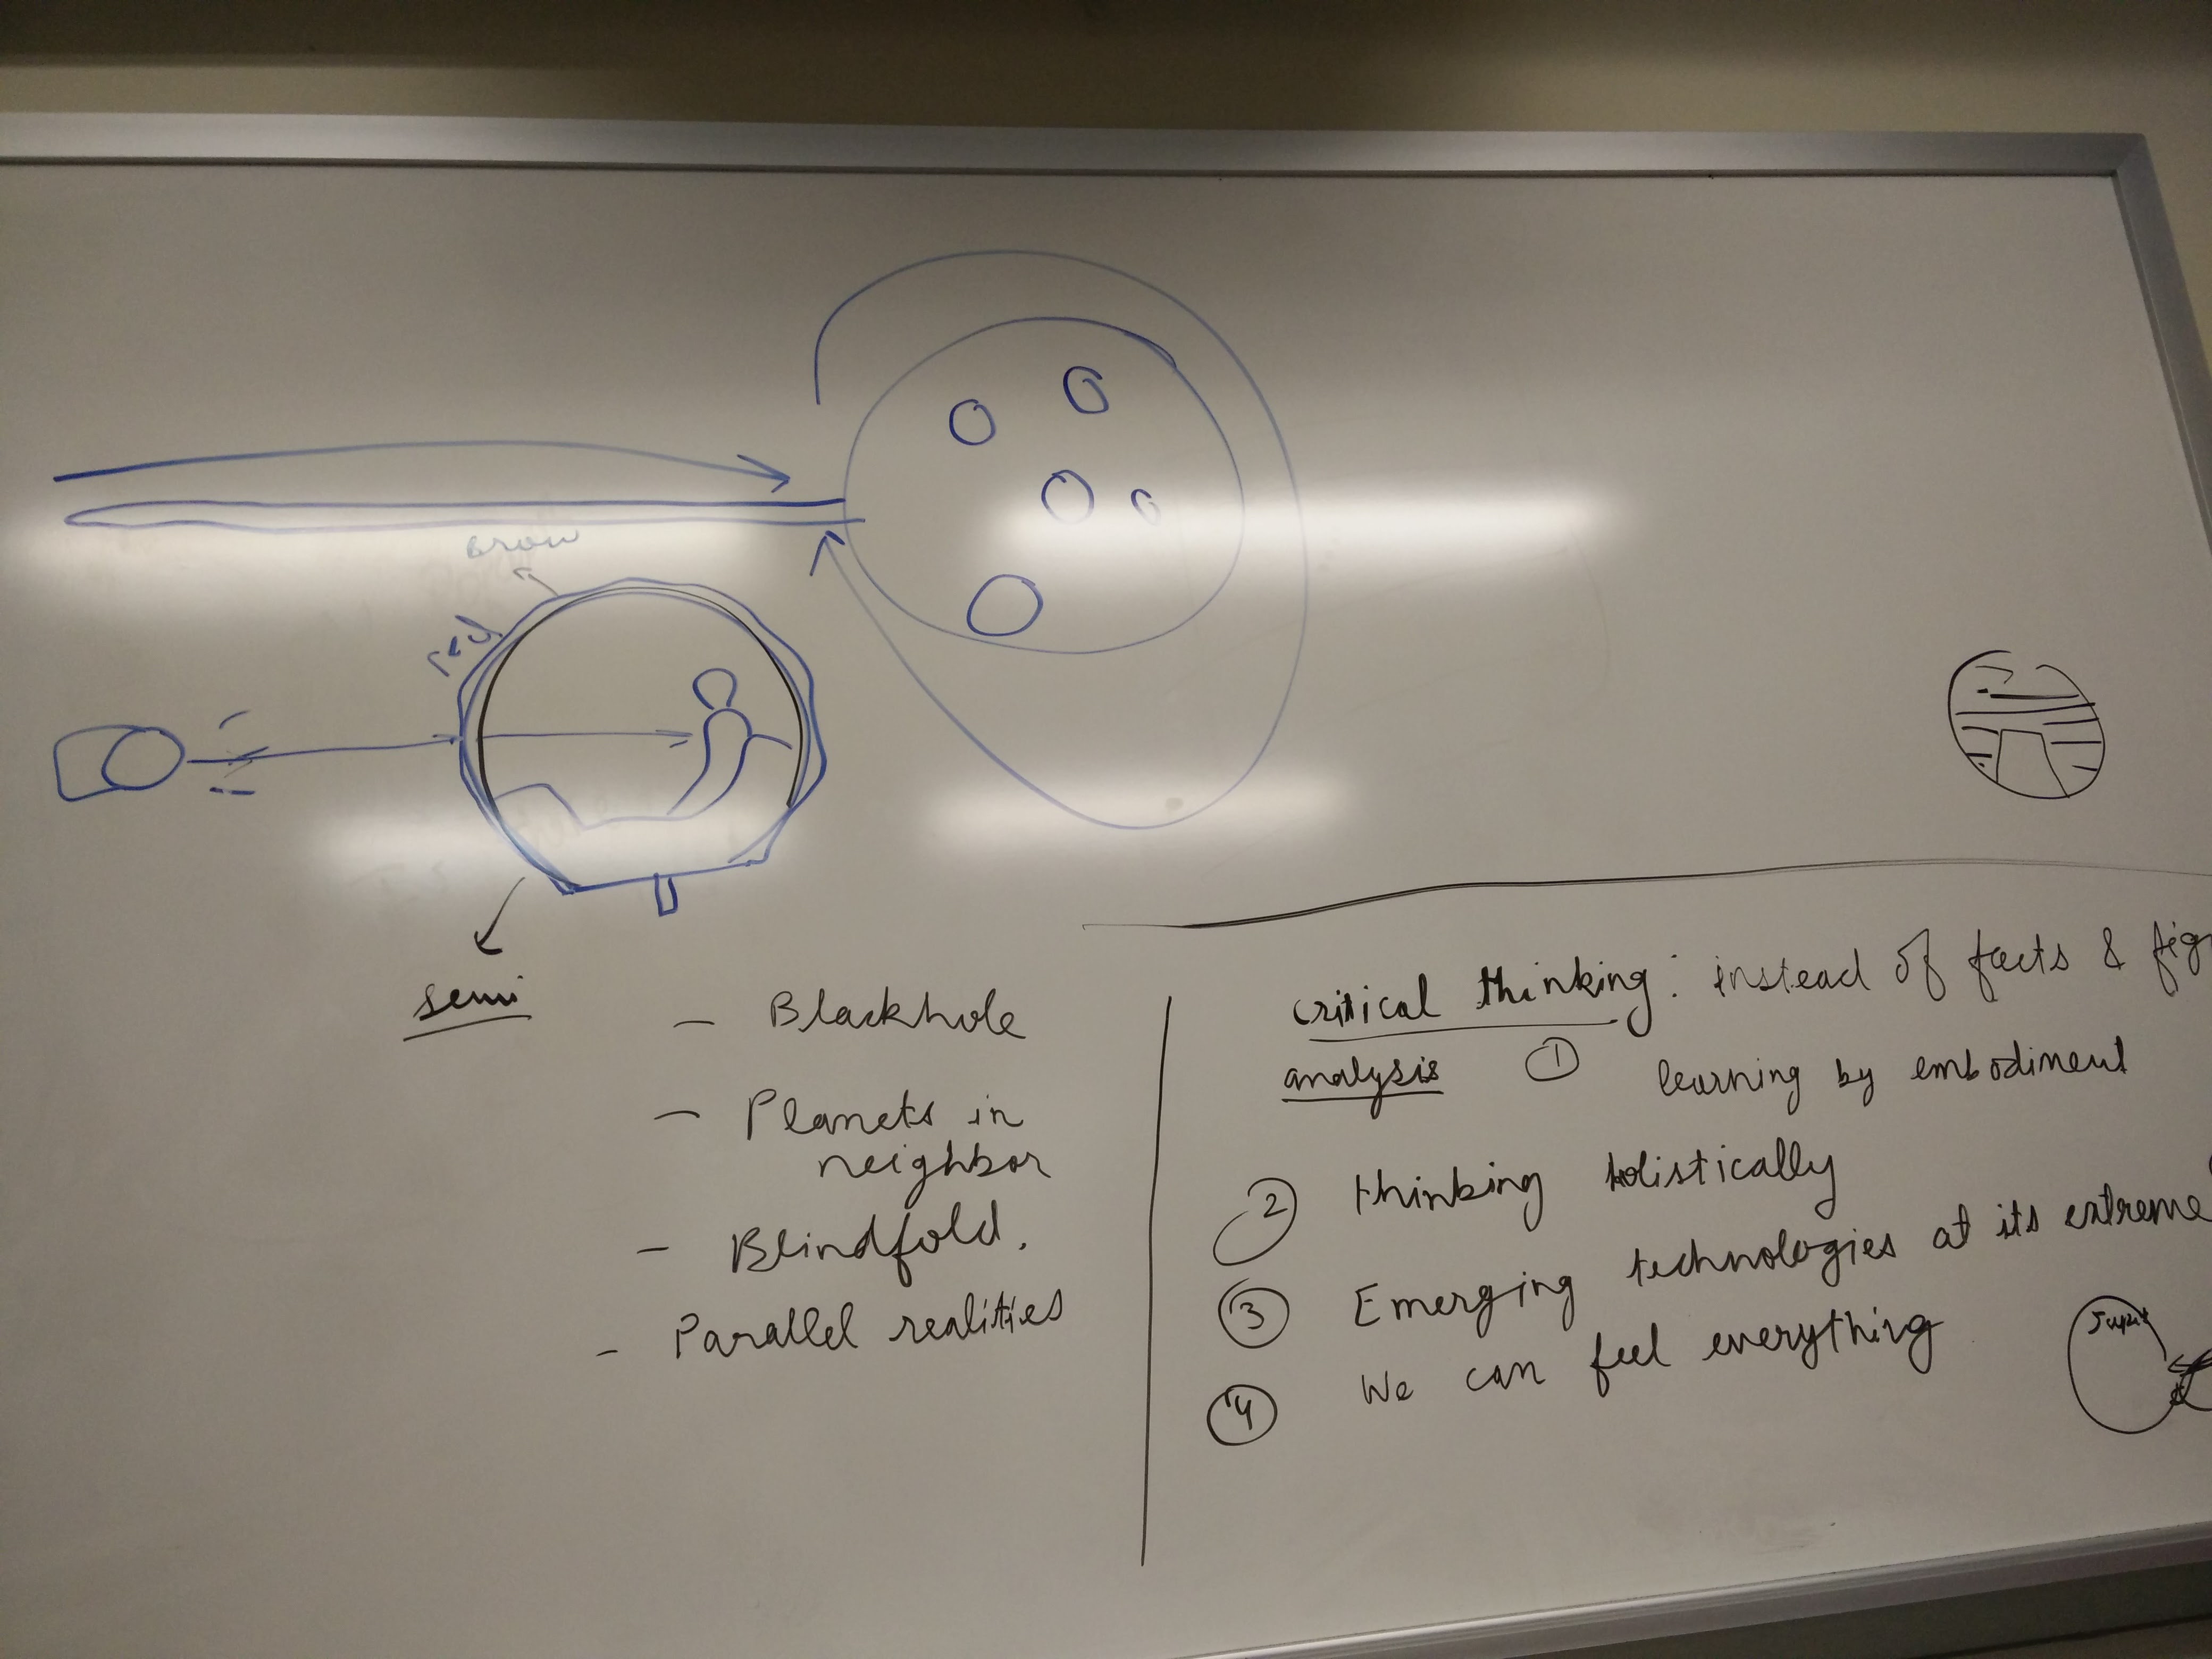 red
semi
- Blackhole
- Planets in
neighbor
- Blindfold.
- Parallel realities
critical thinking: instead of facts & fig
analysis ① learning by embodiment
② thinking holistically
③ Emerging technologies at its extreme
④ We can feel everything